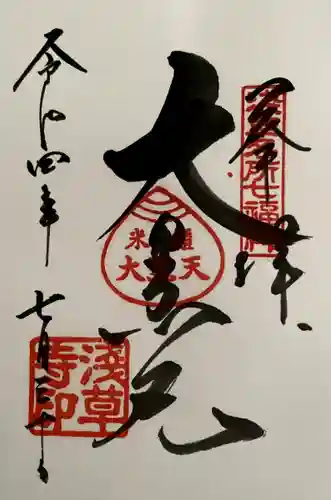 奉拝
浅草名所七福神
大黒天
米櫃
大黒天
令和四年七月三十日
浅草
寺印